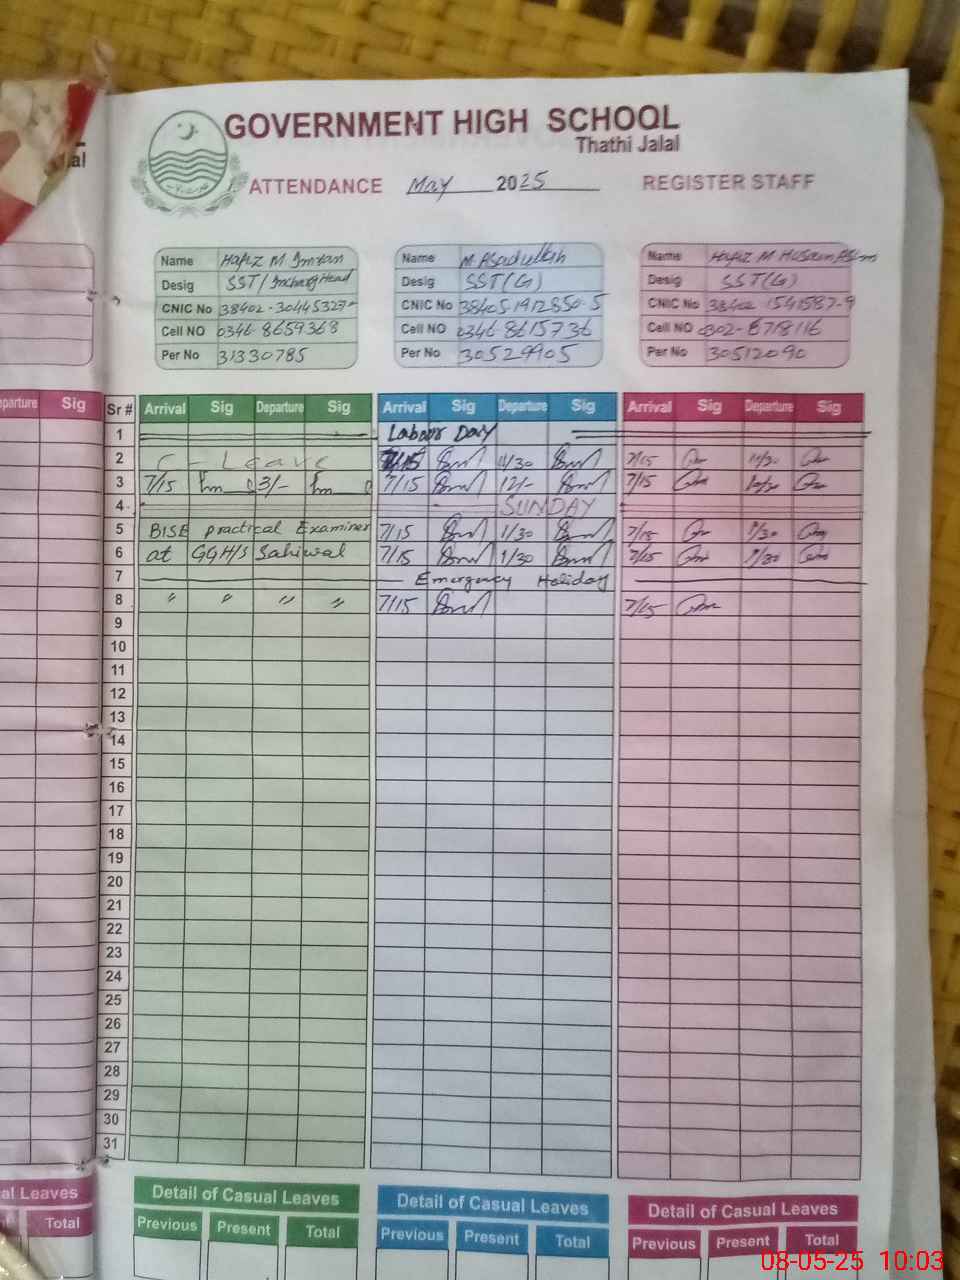 GOVERNMENT HIGH SCHOOL
Thathi Jalal
ATTENDANCE May 2025 REGISTER STAFF
Name Hafiz M Imran
Desig SST/Incharg Head
CNIC No
Cell NO 0346-8659368
Per No 31330785
Name M Asadullah
Desig SST(G)
CNIC No 38405-1912850-5
Cell NO 0346-8615736
Per No 30529905
Name Hafiz M
Desig SST(G)
CNIC No 38402-1541587-9
Cell NO
Per No 30512090
parture Sig
Sr # Arrival Sig Departure Sig Arrival Sig Departure Sig Arrival Sig Departure Sig
1 Labour Day
2 C - Leave 7/15 11/30 7/15 11/30
3 7/15 3/- 7/15 12/- 7/15
4 SUNDAY
5 BISE practical Examiner 7/15 1/30 7/15 1/30
6 at GGH/S Sahiwal 7/15 1/30 7/15 1/30
7 Emergency Holiday
8 〃 〃 〃 〃 7/15 7/15
9
10
11
12
13
14
15
16
17
18
19
20
21
22
23
24
25
26
27
28
29
30
31
al Leaves
Total
Detail of Casual Leaves
Previous Present Total
Detail of Casual Leaves
Previous Present Total
Detail of Casual Leaves
Previous Present Total
08-05-25 10:03